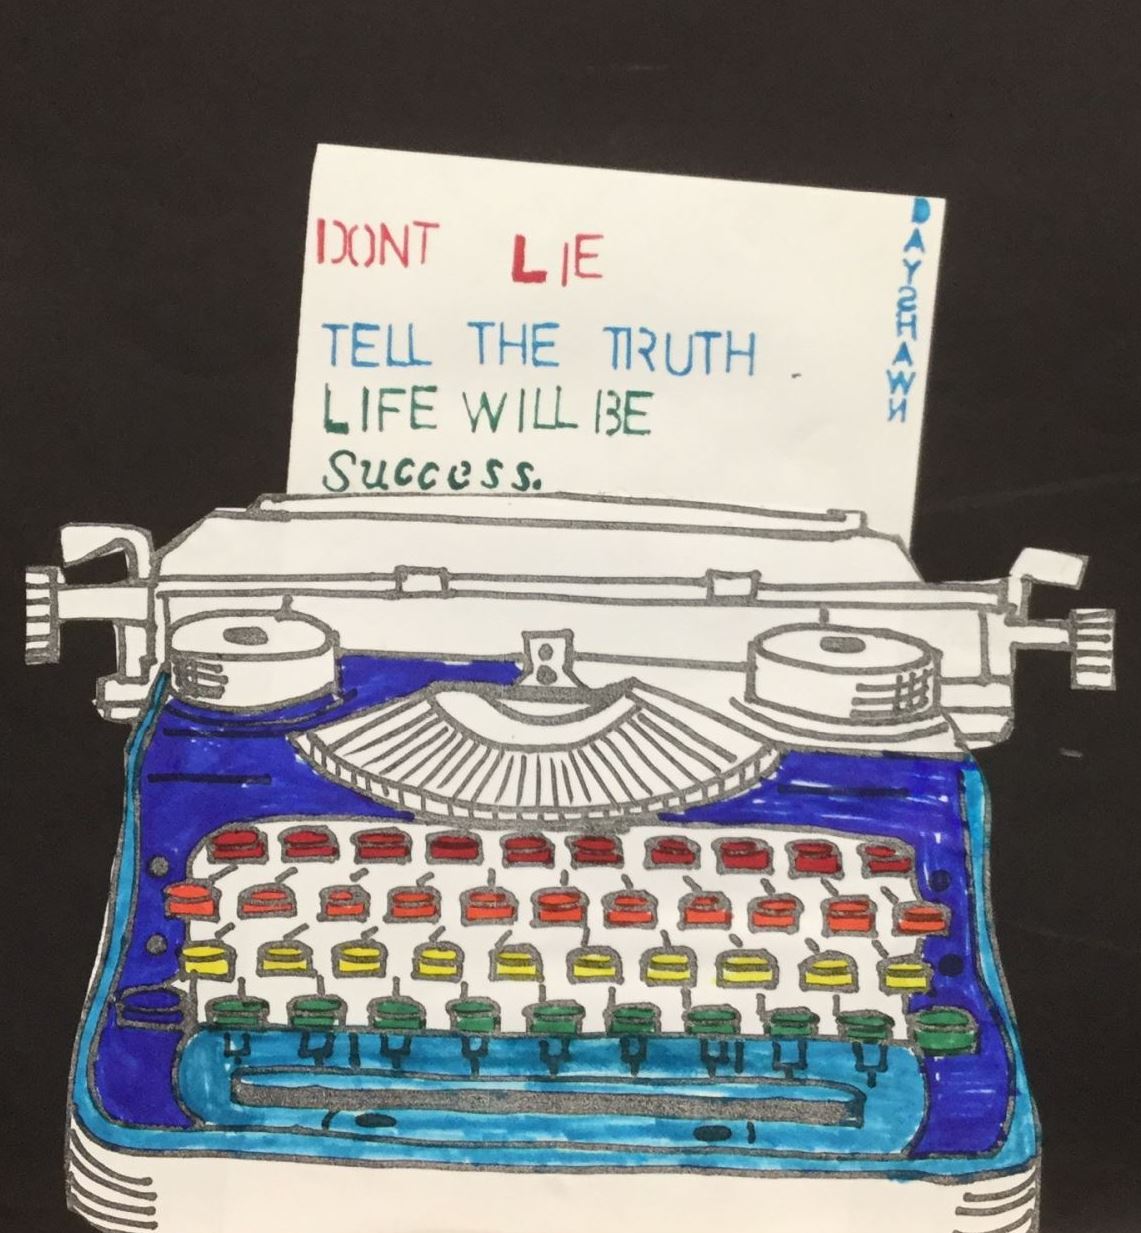 DONT LIE
TELL THE TRUTH
LIFE WILL BE
Success.
DAYSHAWN